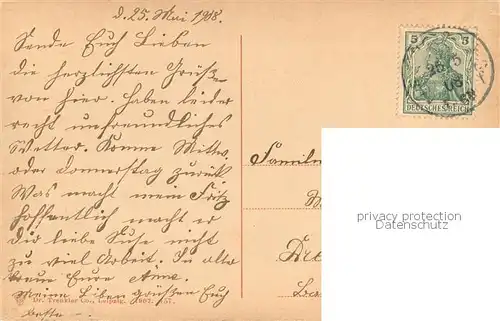 d. 25. Mai 1908.
Sende Euch Lieben
die herzlichsten Grüße
von hier. Haben leider
recht unfreundliches
Wetter. Komme Mittw.
oder Donnerstag zurück
Was macht mein Fritz
hoffentlich macht er
die liebe Suse nicht
zu viel Arbeit. In alter
Eure Anna.
Meine Lieben grüßen Euch
5 5
DEUTSCHES REICH
Familie
privacy protection
Datenschutz
Dr. Trenkler Co., Leipzig.